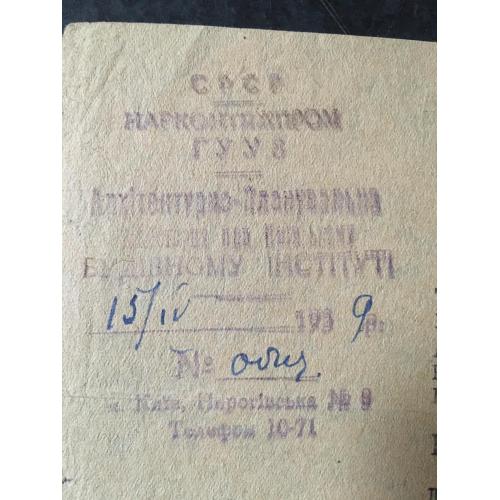 СРСР
НАРКОМТЯЖПРОМ
ГУУЗ
Архітектурно-Планувальна
при Київському
БУДІВНОМУ ІНСТИТУТІ
15/IV 1939 р.
№ общ.
м. Київ, Пирогівська № 9
Телефон 10-71